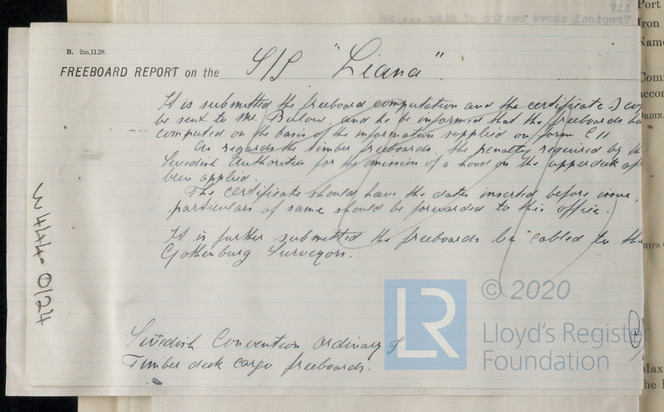 B. 2m,11,28.
FREEBOARD REPORT on the S/S "Liana".
It is submitted the freeboard computation and the certificate
be sent to Mr and he be informed that the freeboards
computed on the basis of the information supplied on form C11
As regards the timber freeboards the penalty required by
Swedish Authorities for the omission of a hood on the upperdeck
been applied.
The certificate should have the date inserted before issue,
particulars of same should be forwarded to this office.
It is further submitted the freeboards be cabled to the
Gothenburg Surveyors.
Swedish Convention Ordinary &
Timber deck cargo freeboards.
W444-0124
© 2020
LR
Lloyd's Register
Foundation
Port
Iron
Name